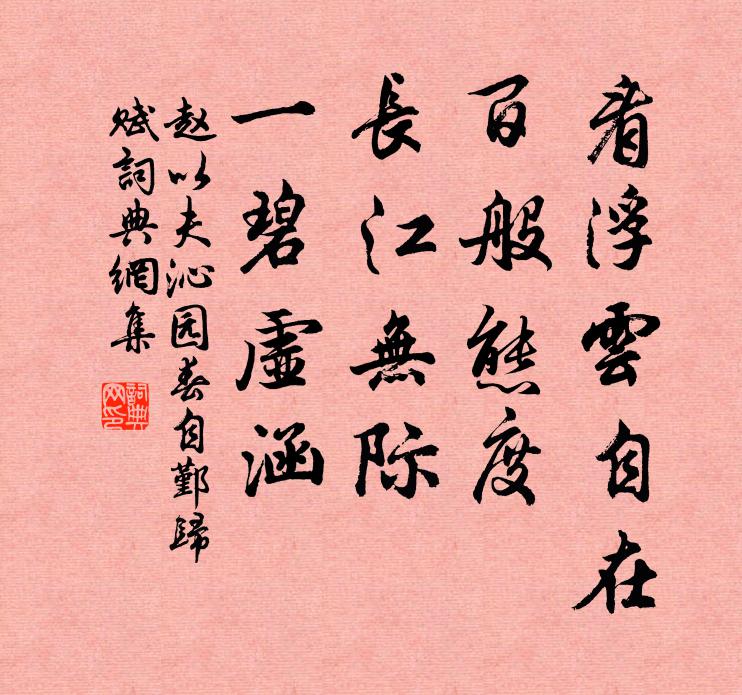 看浮雲自在
百般態度
長江無際
一碧虛涵
赵以夫沁园春自鄞歸
赋詞典網集
詞典網印